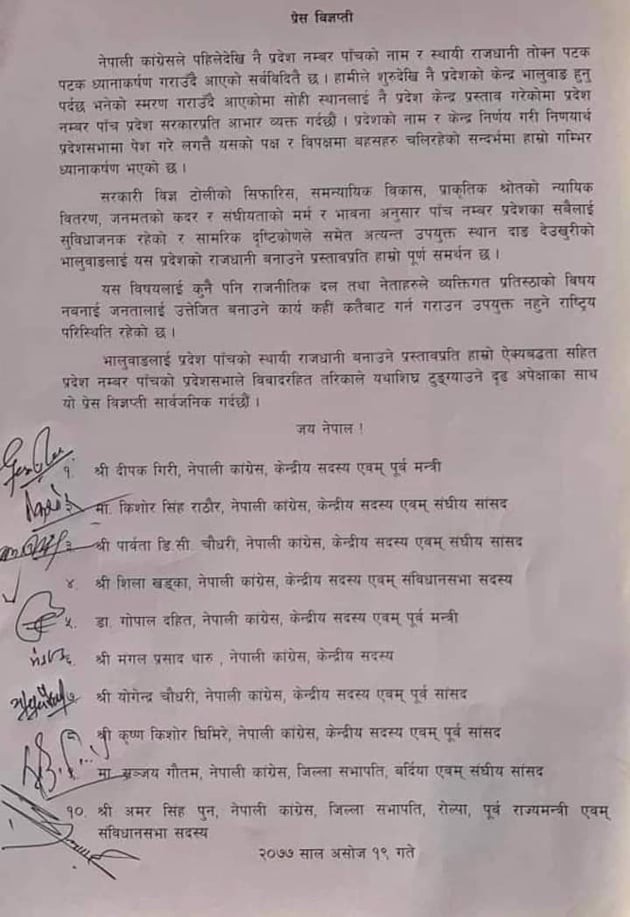 प्रेस विज्ञप्ती
नेपाली कांग्रेसले पहिलेदेखि नै प्रदेश नम्बर पाँचको नाम र स्थायी राजधानी तोक्न पटक
पटक ध्यानाकर्षण गराउँदै आएको सर्वविदितै छ । हामीले शुरुदेखि नै प्रदेशको केन्द्र भालुवाङ हुनु
पर्दछ भनेको स्मरण गराउँदै आएकोमा सोही स्थानलाई नै प्रदेश केन्द्र प्रस्ताव गरेकोमा प्रदेश
नम्बर पाँच प्रदेश सरकारप्रति आभार व्यक्त गर्दछौं । प्रदेशको नाम र केन्द्र निर्णय गरी निणयार्थ
प्रदेशसभामा पेश गरे लगत्तै यसको पक्ष र विपक्षमा बहसहरु चलिरहेको सन्दर्भमा हाम्रो गम्भिर
ध्यानाकर्षण भएको छ ।
सरकारी विज्ञ टोलीको सिफारिस, समन्यायिक विकास, प्राकृतिक श्रोतको न्यायिक
वितरण, जनमतको कदर र संघीयताको मर्म र भावना अनुसार पाँच नम्बर प्रदेशका सबैलाई
सुविधाजनक रहेको र सामरिक दृष्टिकोणले समेत अत्यन्त उपयुक्त स्थान दाङ देउखुरीको
भालुवाङलाई यस प्रदेशको राजधानी बनाउने प्रस्तावप्रति हाम्रो पूर्ण समर्थन छ ।
यस विषयलाई कुनै पनि राजनीतिक दल तथा नेताहरुले व्यक्तिगत प्रतिस्ठाको बिषय
नबनाई जनतालाई उत्तेजित बनाउने कार्य कहीं कतैबाट गर्न गराउन उपयुक्त नहुने राष्ट्रिय
परिस्थिति रहेको छ ।
भालुवाङलाई प्रदेश पाँचको स्थायी राजधानी बनाउने प्रस्तावप्रति हाम्रो ऐक्यबद्धता सहित
प्रदेश नम्बर पाँचको प्रदेशसभाले बिबादरहित तरिकाले यथाशिघ्र टुङ्ग्याउने दृढ अपेक्षाका साथ
यो प्रेस विज्ञप्ती सार्वजनिक गर्दछौं ।
जय नेपाल !
१. श्री दीपक गिरी, नेपाली कांग्रेस, केन्द्रीय सदस्य एवम् पूर्व मन्त्री
मा. किशोर सिंह राठौर, नेपाली कांग्रेस, केन्द्रीय सदस्य एवम् संघीय सांसद
३ श्री पार्वता डि.सी. चौधरी, नेपाली कांग्रेस, केन्द्रीय सदस्य एवम् संघीय सांसद
४. श्री शिला खड्का, नेपाली कांग्रेस, केन्द्रीय सदस्य एवम् संविधानसभा सदस्य
५. डा. गोपाल दहित, नेपाली कांग्रेस, केन्द्रीय सदस्य एवम् पूर्व मन्त्री
६. श्री मंगल प्रसाद थारु , नेपाली कांग्रेस, केन्द्रीय सदस्य
७ श्री योगेन्द्र चौधरी, नेपाली कांग्रेस, केन्द्रीय सदस्य एवम् पूर्व सांसद
श्री कृष्ण किशोर घिमिरे, नेपाली कांग्रेस, केन्द्रीय सदस्य एवम् पूर्व सांसद
मा. सञ्जय गौतम, नेपाली कांग्रेस, जिल्ला सभापति, बर्दिया एवम् संघीय सांसद
१०. श्री अमर सिंह पुन, नेपाली कांग्रेस, जिल्ला सभापति, रोल्पा, पूर्व राज्यमन्त्री एवम्
संविधानसभा सदस्य
२०७७ साल असोज १९ गते